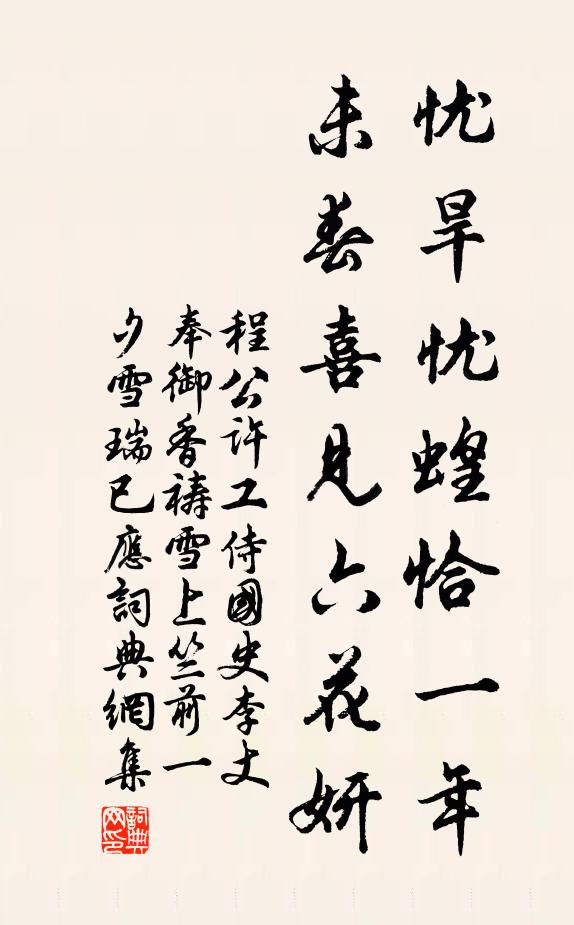 忧旱忧蝗恰一年
未春喜见六花妍
程公许工侍國史李丈
奉御香祷雪上竺前一
夕雪瑞已應詞典網集
詞典网印